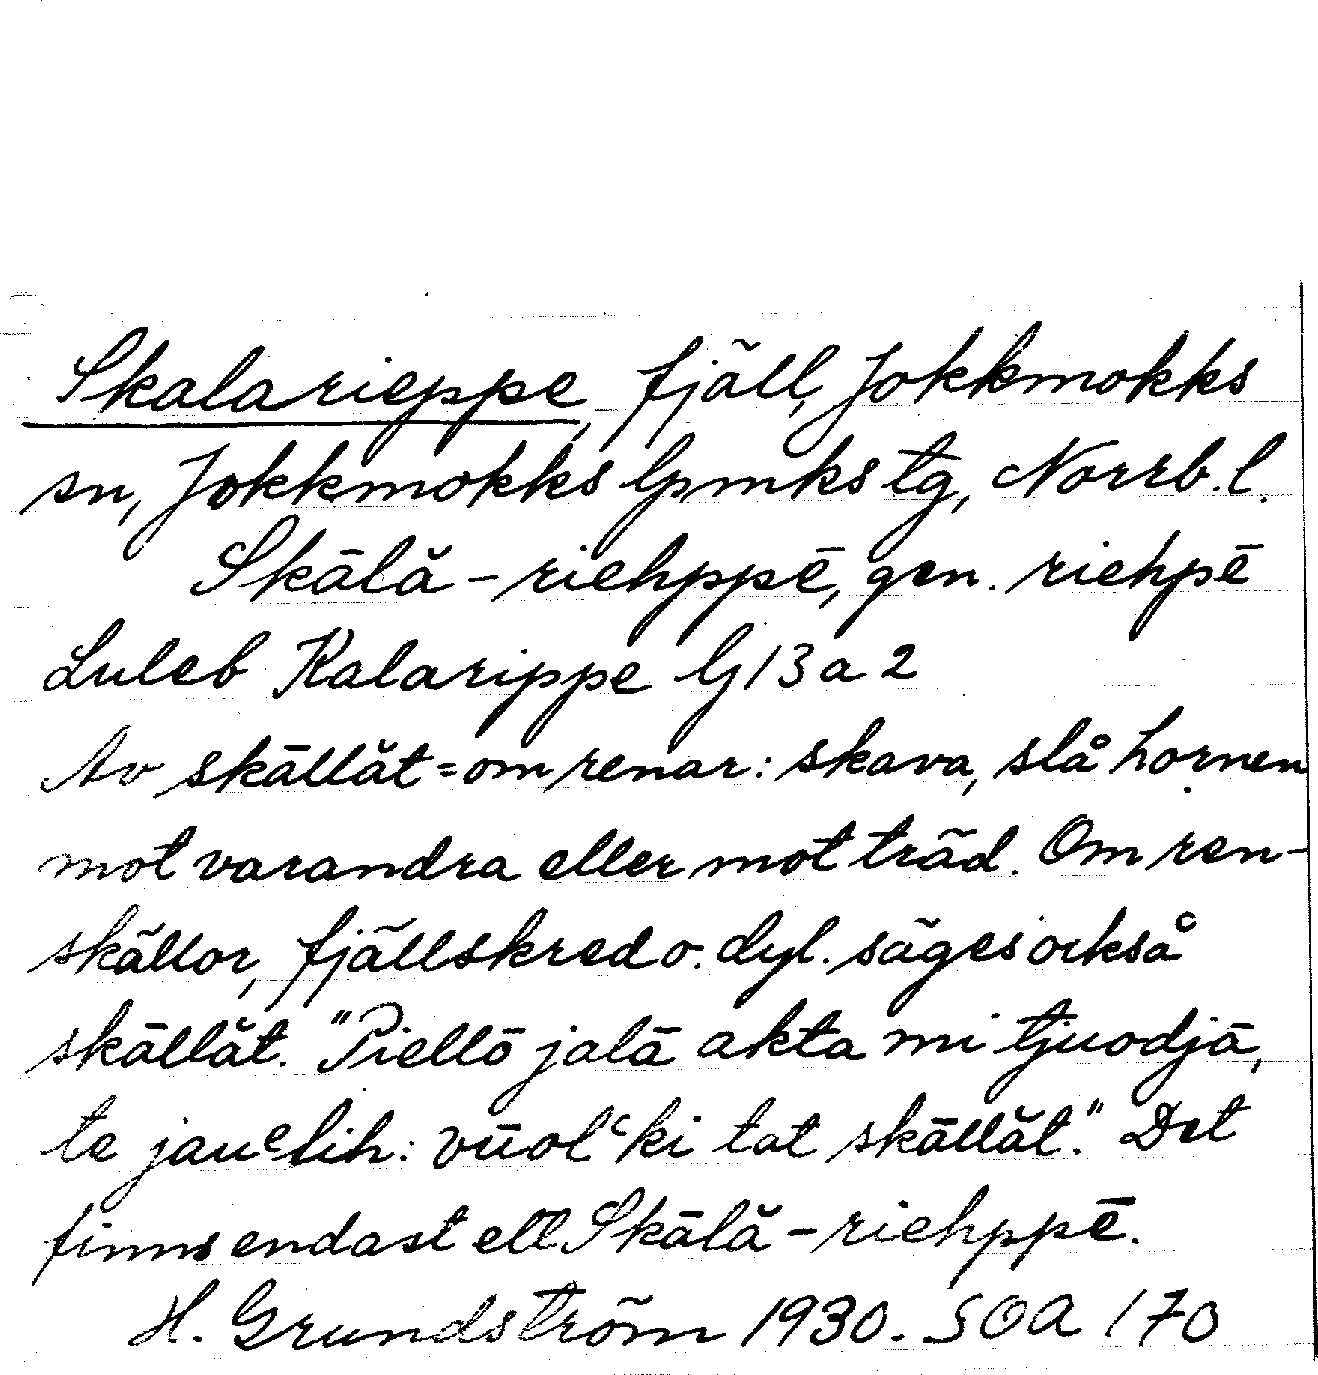 Skalarieppe, fjäll, Jokkmokks
sn, Jokkmokks lpmks tg, Norrb. l.
Skālă-riehppē, gen. riehpē
Luleb Kalarippe lj 13 a 2
Av skāllăt = om renar: skava, slå hornen
mot varandra eller mot träd. Om ren-
skällor, fjällskred o. dyl. säges också
skāllăt. "Piellō jalā akta mi tjuodjā,
te jauᵉlih: vūolʿki tat skāllăt." Det
finns endast ett Skālă-riehppē.
H. Grundström 1930. SOA 170